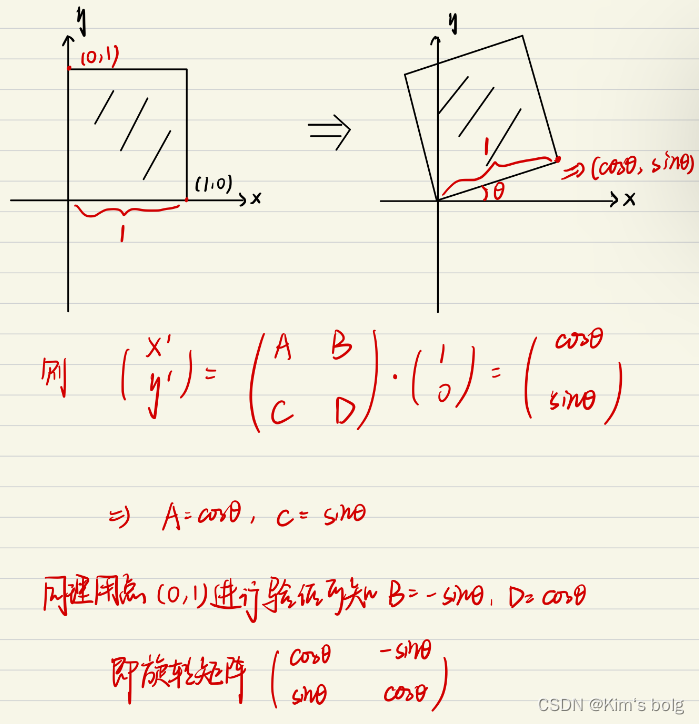 y
y
(0,1)
(1,0)
x
1
⇒
1
θ
⇒(cosθ, sinθ)
x
则 (x' y') = (A B C D) · (1 0) = (cosθ sinθ)
⇒ A=cosθ, C= sinθ
同理用点 (0,1) 进行验证可知 B=-sinθ, D=cosθ
即旋转矩阵 (cosθ -sinθ
sinθ cosθ)
CSDN @Kim's bolg